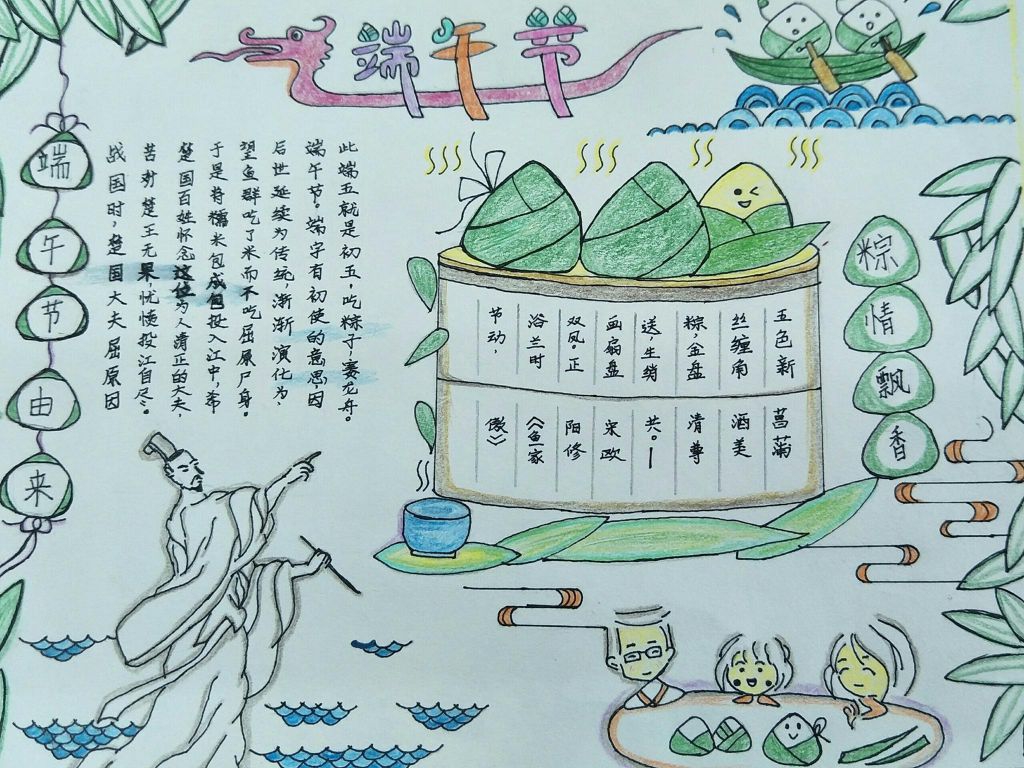 端午节
端午节由来
战国时,楚国大夫屈原因
苦劝楚王无果,忧愤投江自尽。
楚国百姓怀念这位为人清正的大夫,
于是将糯米包成包投入江中,希
望鱼群吃了米而不吃屈原尸身。
后世延续为传统,渐渐演化为,
端午节。端字有初使的意思,因
此端五就是初五,吃粽子,赛龙舟。
五色新
丝缠角
粽,金盘
送,生绡
画扇盘
双凤。正
浴兰时
节动,
菖蒲
酒美
清尊
共。—
宋欧
阳修
《鱼家
傲》
粽情飘香